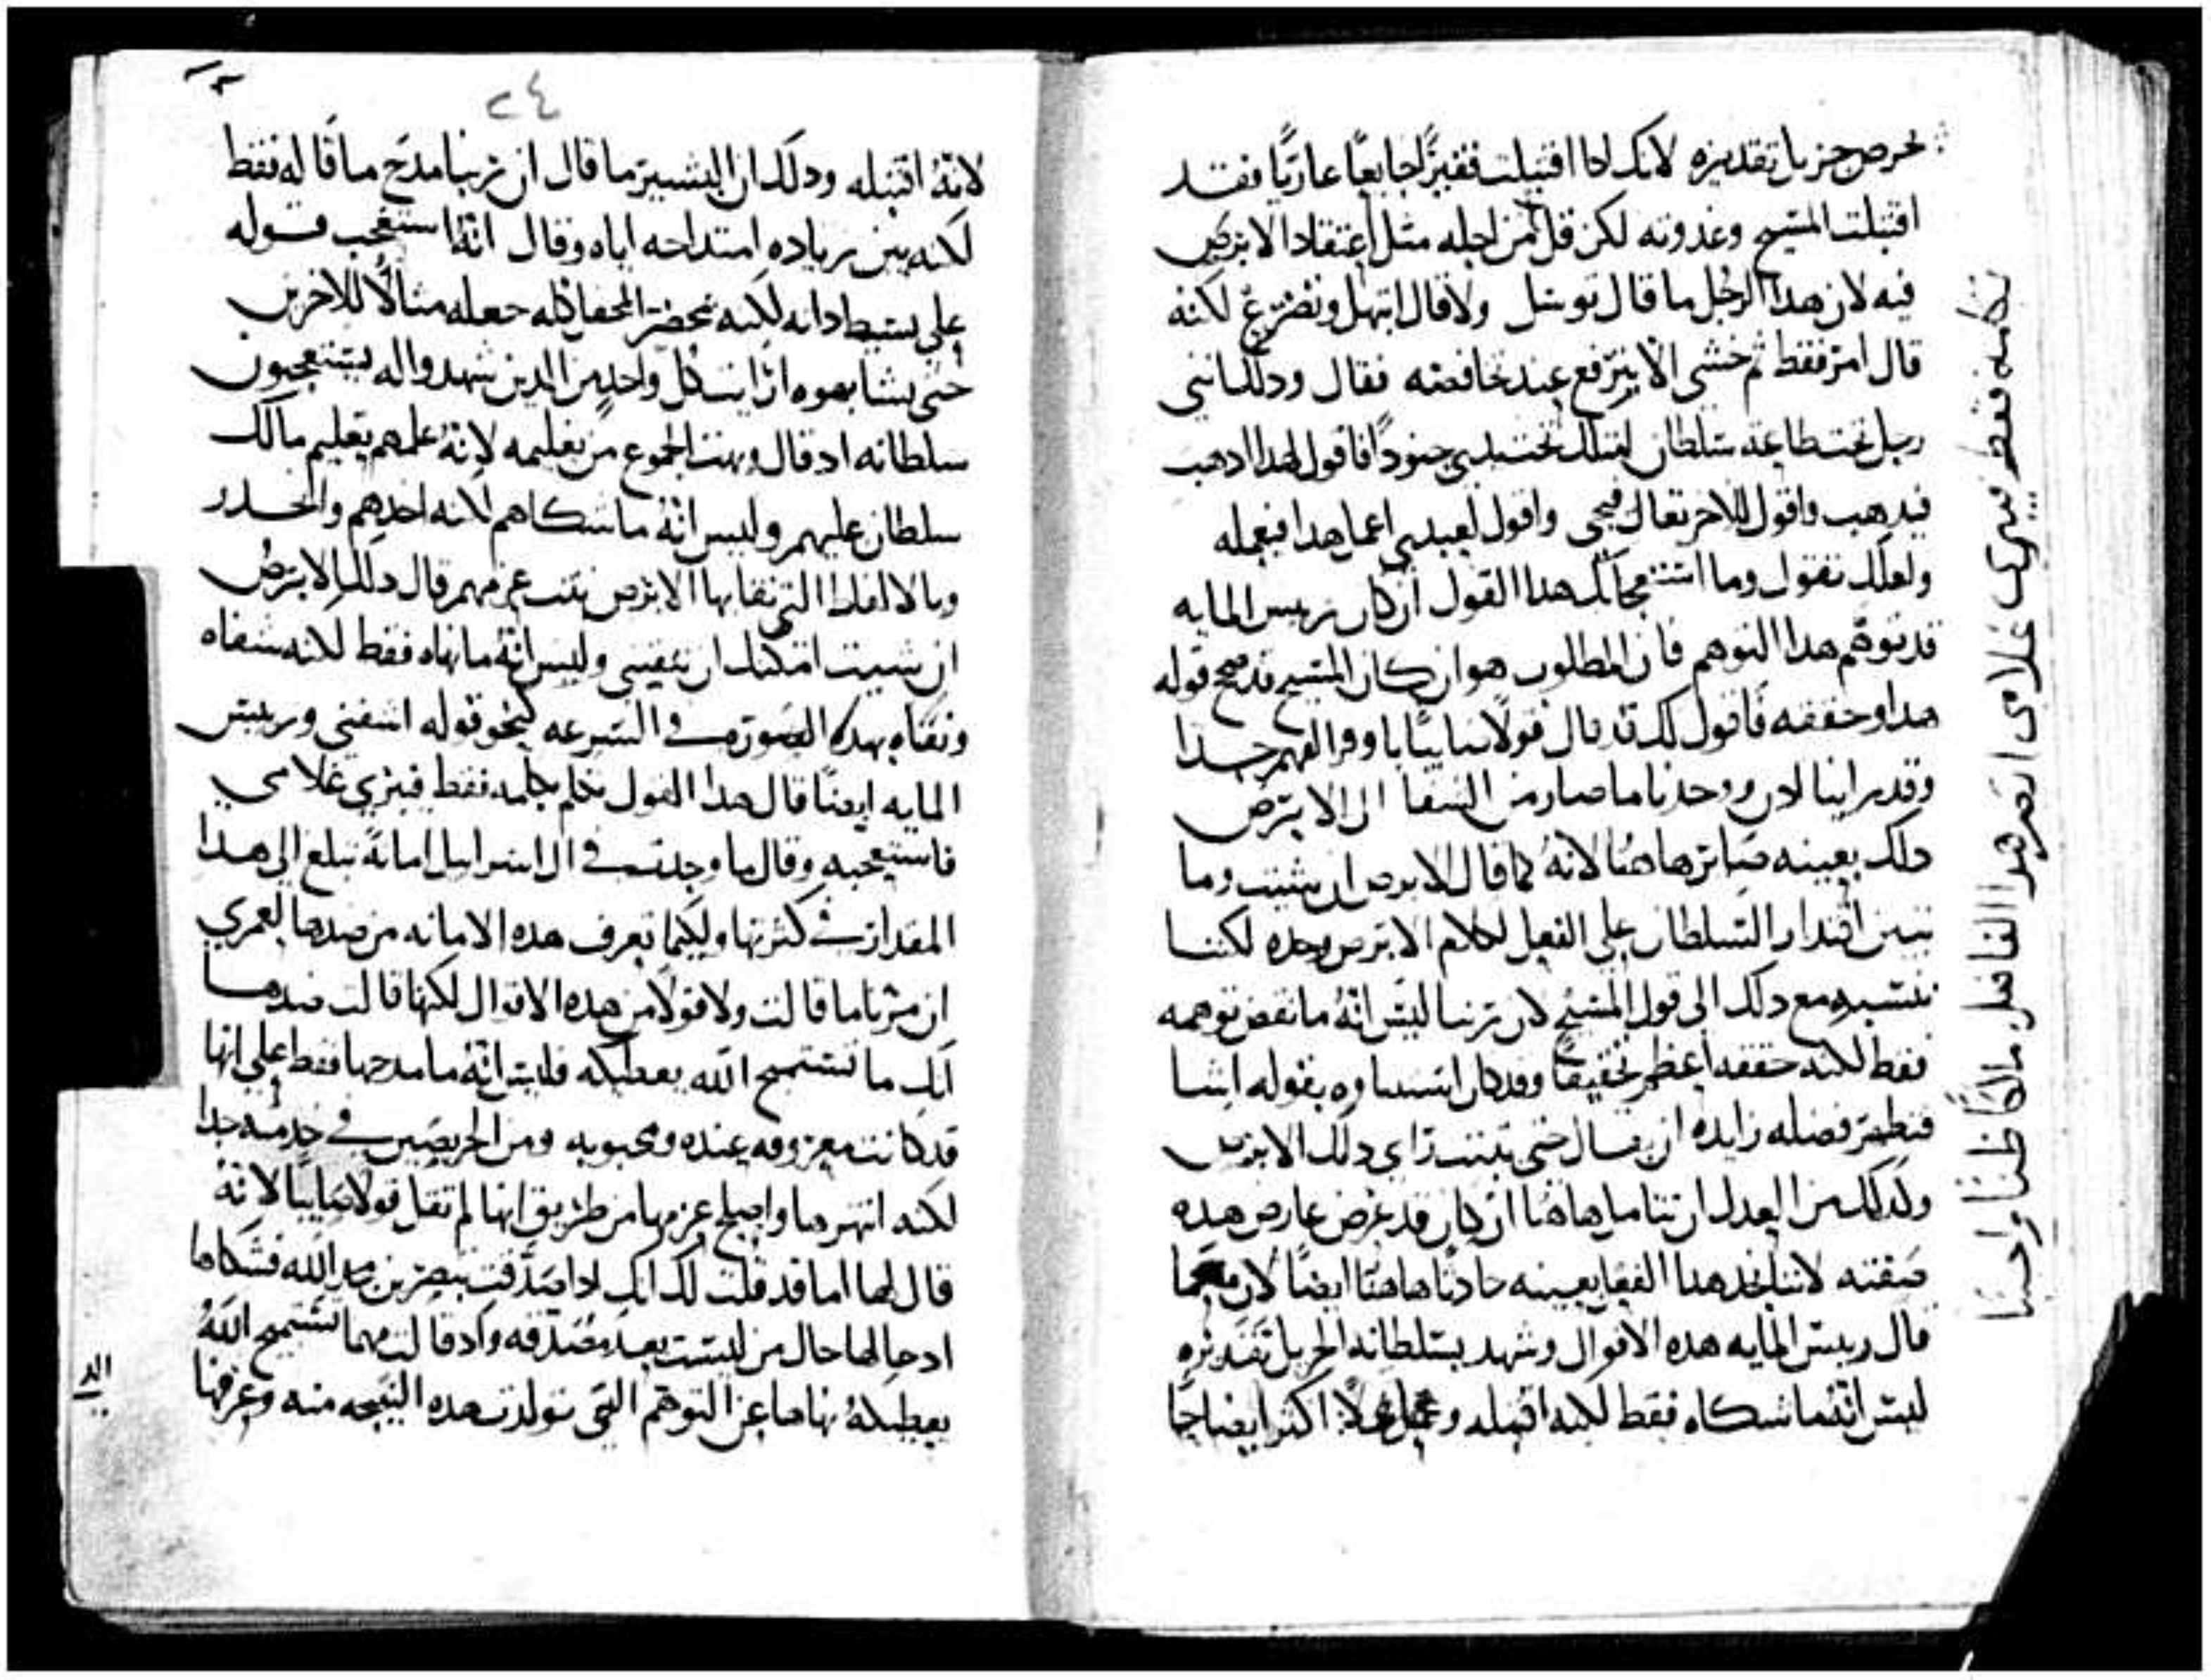 بحرص جزيل تقديره لانك ادا اقتبلت فقيرًا جايعًا عاريًا فقد
اقتبلت المسيح وغدوته لكن قل كمن اجله مثل اعتقاد الابرص
فيه لان هدا الرجل ما قال توسل ولا قال ابتهل وتضرع لكنه
قال امر فقط ثم خشى الا يترفع عند خافضته فقال ودلك انني
رجل تحت طاعة سلطان امتلك تحت يدي جنودًا فاقول لهدا ادهب
فيدهب واقول للاخر تعال فيجى واقول لعبدي اعمل هدا فيعمله
ولعلك تقول وما استنتجالك هدا القول ان كان ريس المايه
قد توهم هدا التوهم فان المطلوب هو ان كان المسيح قد صحح قوله
هدا وحققه فاقول لك قد قال قولًا صايبًا يا وافر الفهم جدا
وقد راينا لان ووجدنا ما صار من الشفا الى الابرص
دلك بعينه صاير هاهنا لانه كما قال الابرص ان شيت وما
تبين اقتدار السلطان على الفعل لكلام الابرص وحده لكننا
ننتسبه مع دلك الى قول المسيح لان ربنا ليس انه ما نقض توهمه
فقط لكنه حققه اعظم تحقيقًا وقد كان بقوله اشا
فتطهر فضله زايده ان قال حتى يثبت راي دلك الابرص
ولدلك من العدل ان نتامل هاهنا ان كان قد عرض عارض هده
صفته لاننا نجد هدا الفعل بعينه حادثًا هاهنا ايضًا لان
قال ريس المايه هده الاقوال وشهد بسلطانه الجزيل تقديره
ليس انه ما شكاه فقط لكنه اقتبله وعمل عملًا اكثر ايضا
بكلمه فقط فيبرى غلامى انصر هدا الفاضل واحسا
٢٤
لانه اقتبله ودلك ان البشير ما قال ان ربنا مدح ما قاله فقط
لكنه بين زياده امتداحه اياه وقال انه استعجب قوله
على بسيط داته لكنه بحضرة المحفل كله جعله مثالًا للاخرين
حتى يشابهوه ارايت كل واحد من الدين شهدوا له يستعجبون
سلطانه اد قال وبهت الجموع من تعليمه لانه علمهم تعليم مالك
سلطان عليهم وليس انه ما شكاهم لانه احدهم وانحدر
وبالالفاظ التي نقا بها الابرص ثبت عزمهم قال دلك الابرص
ان شيت امكنك ان تنقيني وليس انه ما نهاه فقط لكنه شفاه
ونقاه بهده الصوره في السرعه كنحو قوله اشفني وريس
المايه ايضًا قال هدا القول تكلم بكلمه فقط فيبري غلامي
فاستعجبه وقال ما وجدت في ال اسراييل امانةً تبلغ الى هدا
المقدار في كثرتها ولكيما تعرف هده الامانه من ضدها لعمري
ان مرثا ما قالت ولا قولًا من هده الاقوال لكنها قالت ضدها
انك ما تستميح الله يعطيكه فليس انه ما مدحها فقط على انها
قد كانت معروفه عنده ومحبوبه ومن الحريصين في خدمته جدا
لكنه انتهرها واصلح عزمها من طريق انها لم تقل قولًا صايبًا لانه
قال لها اما قد قلت لك انك ادا صدقت تبصرين مجد الله فشكاها
اد حالها حال من ليست بعد مصدقه واد قالت مهما تستميح الله
يعطيكهُ نهاها عن التوهم التي تولدت هده النتيجه منه وعرفها